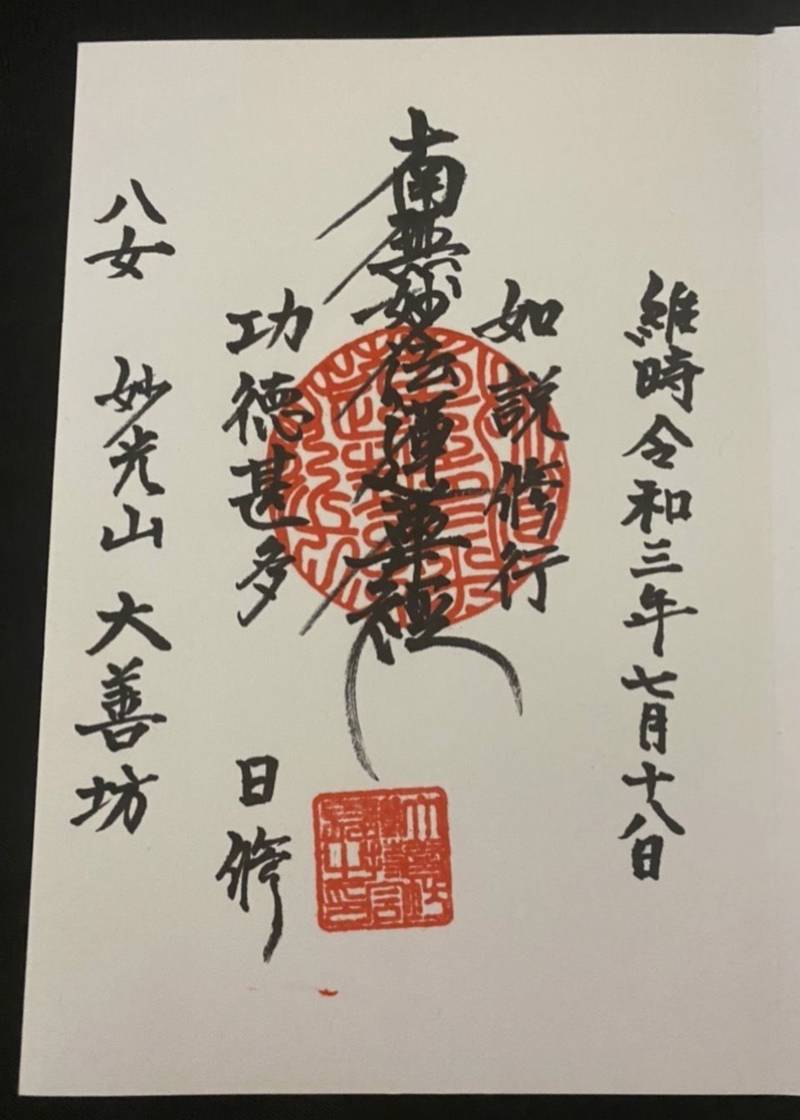 維時令和三年七月十八日
如説修行
南無妙法蓮華経
功徳甚多
日修
八女 妙光山 大善坊